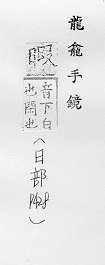 龍龕手鏡
暇
音下白
也閑也
(日部 P428)